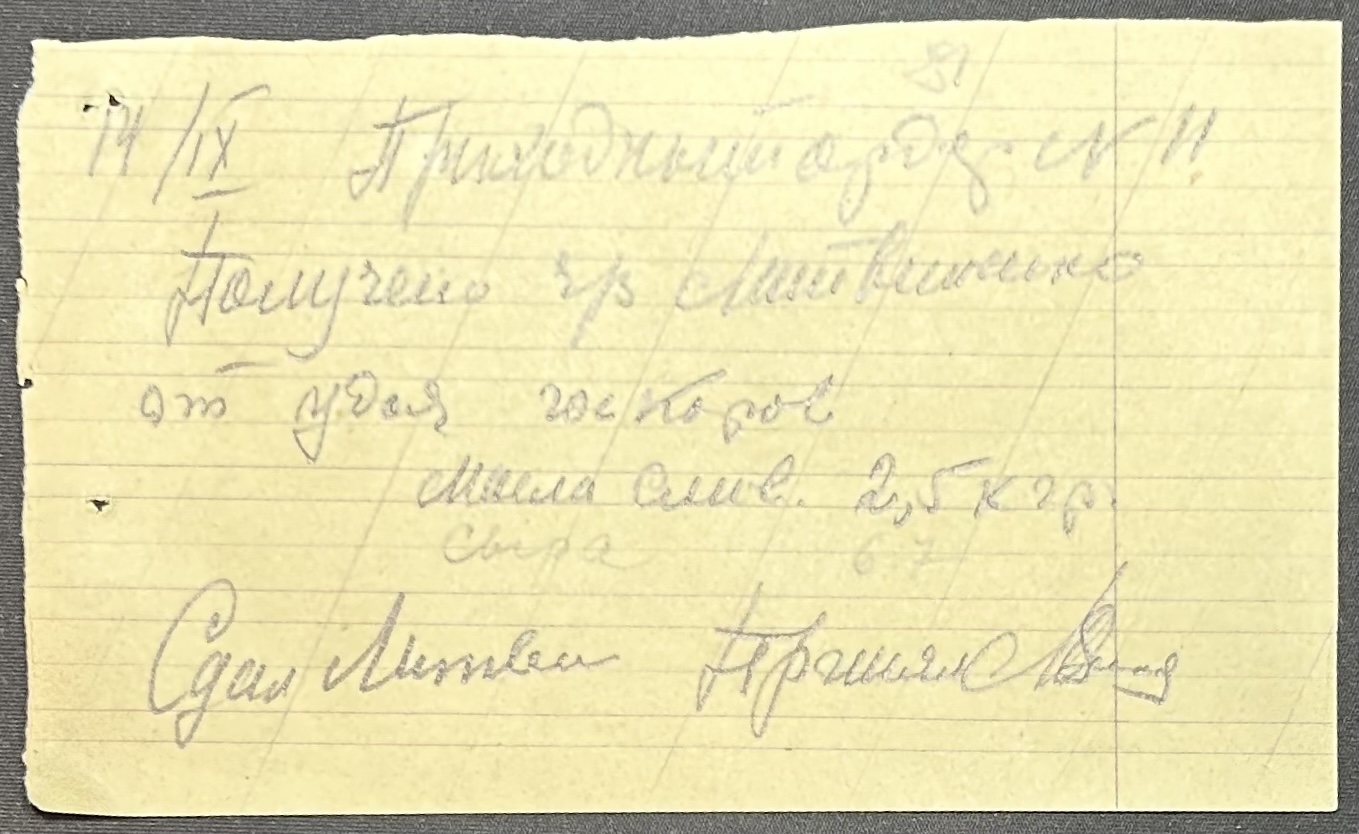 81
14/IX Приходный ордер N 11
Получено гр Литвиненко
от удоя госкоров
Масла слив. 2,5 кгр.
Сыра 6.7
Сдал Литвин Принял